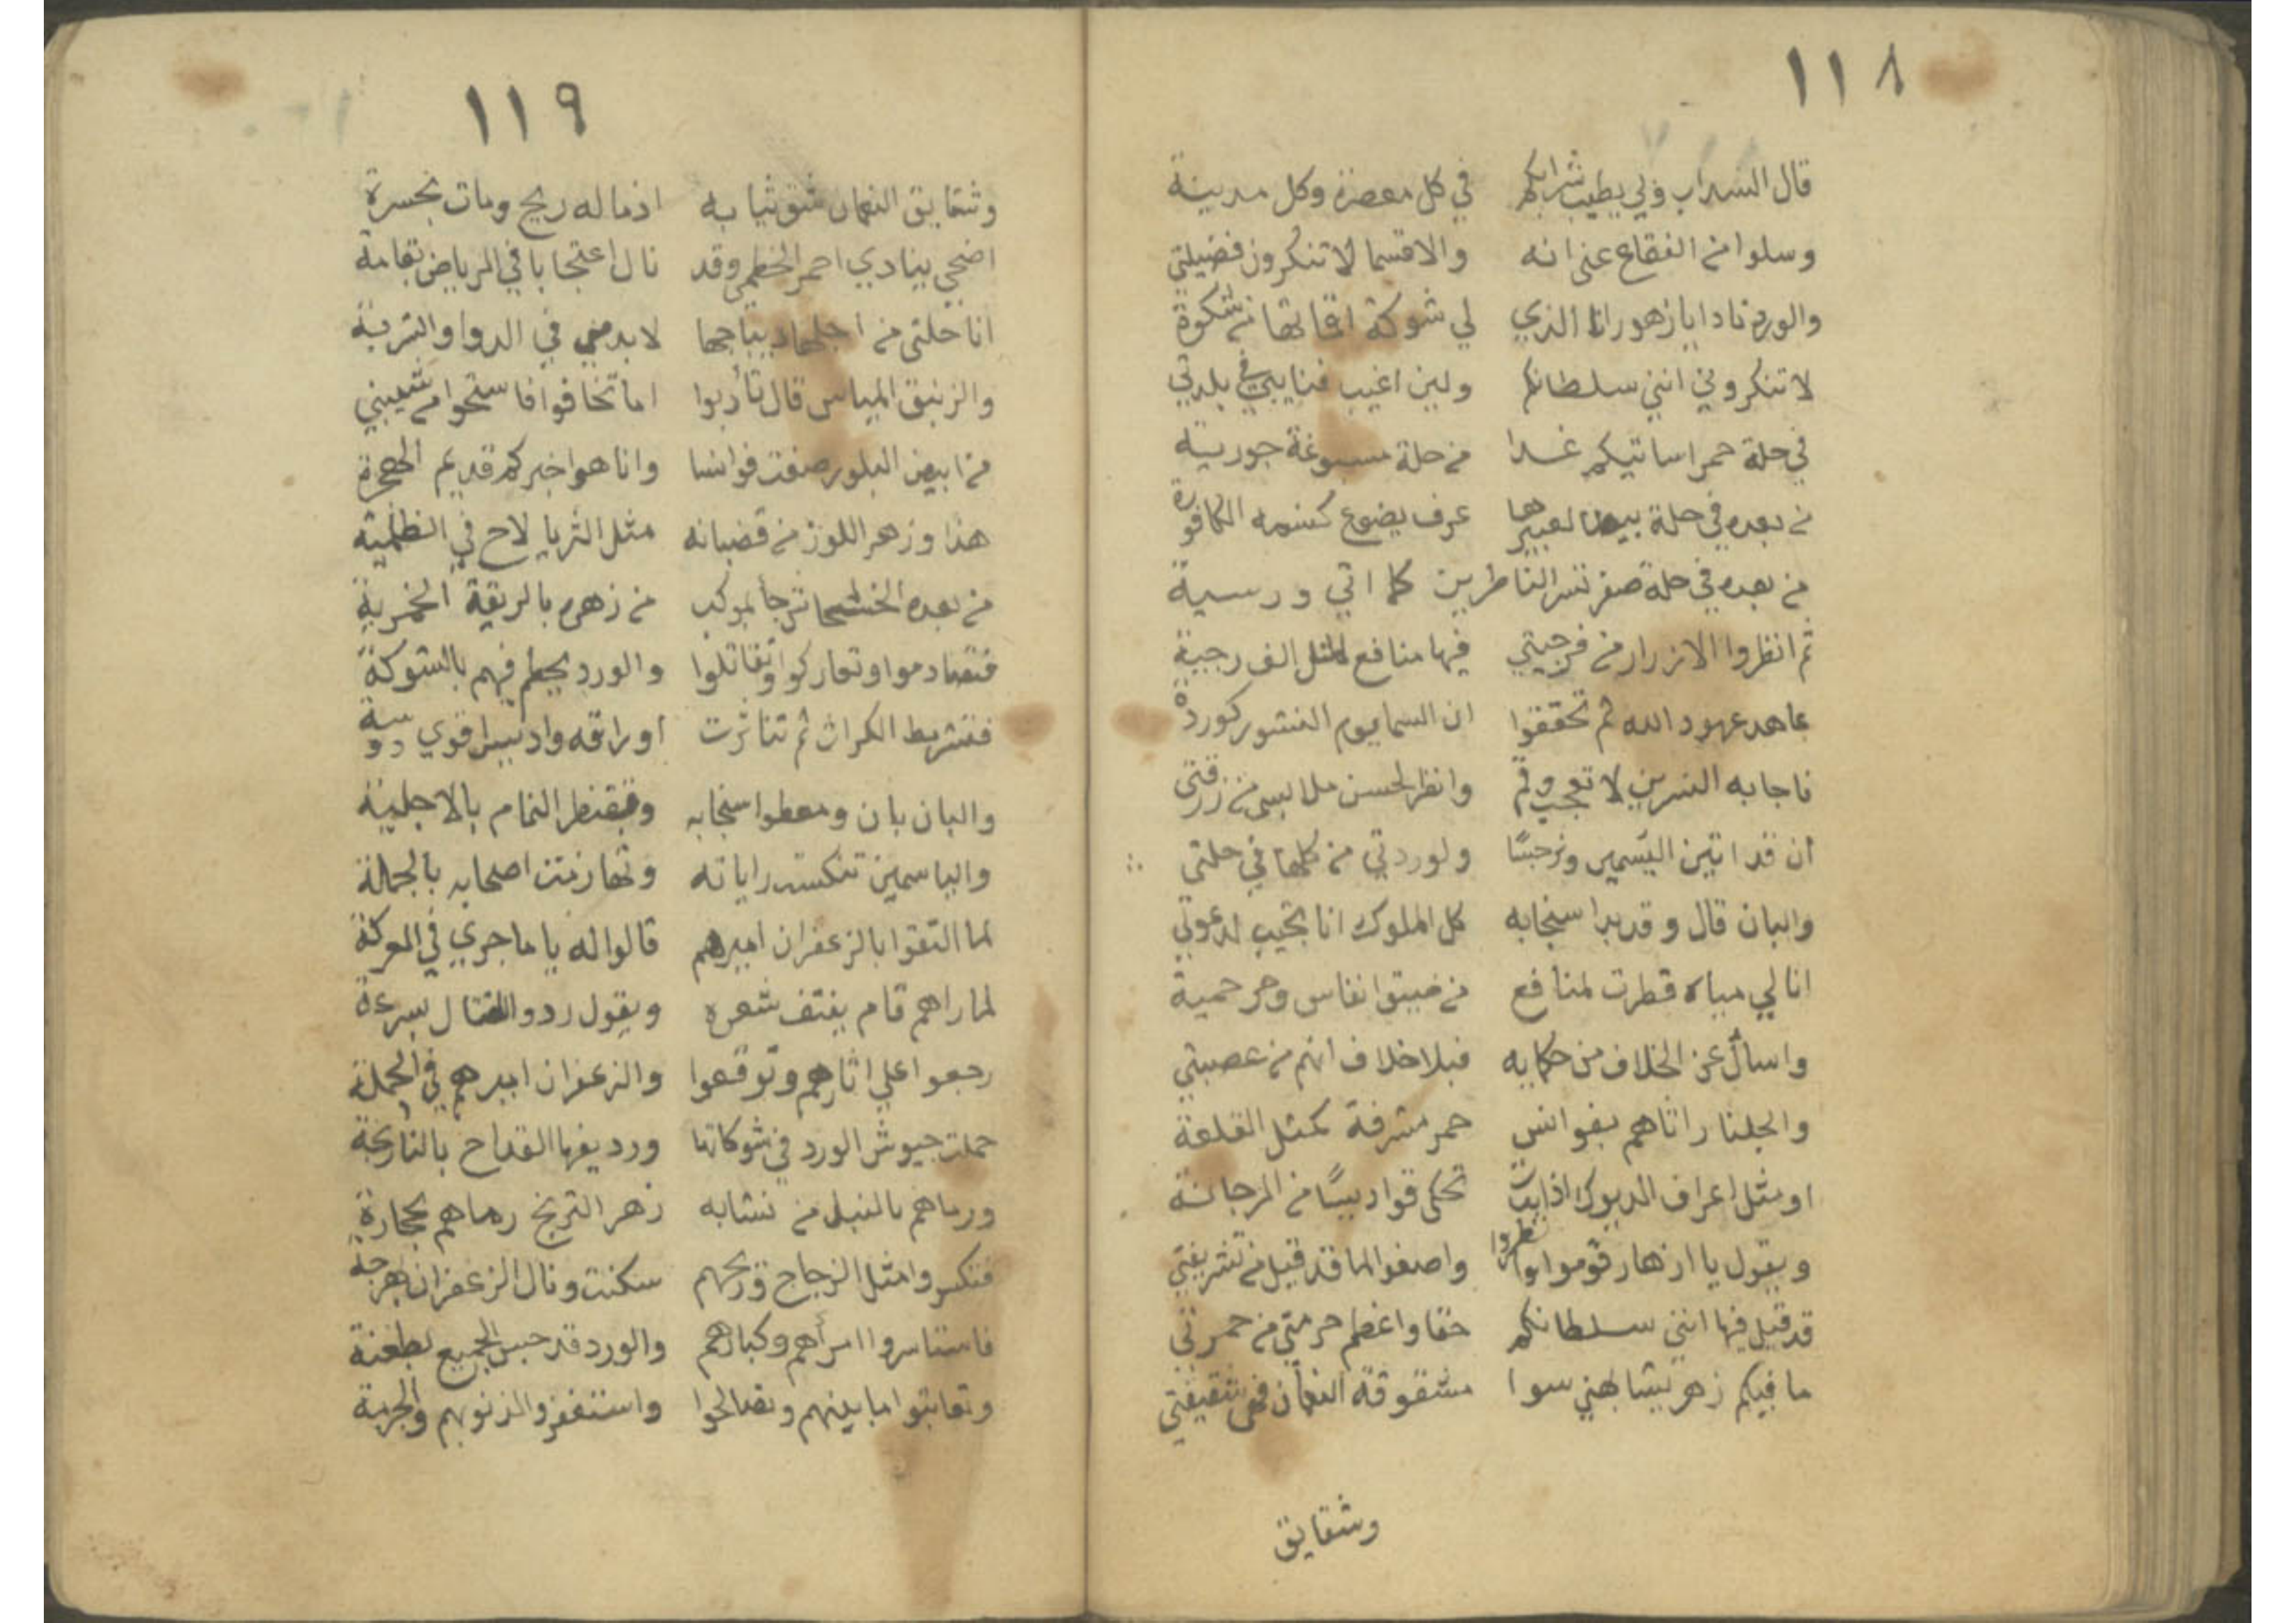 ١١٨
قال الشراب ولي يطيب شرابكم في كل معصرة وكل مدينة
وسلوا من الفقاع عني انه والاقسما لا تنكرون فضيلتي
والورد نادا يا زهور انا الذي لي شوكة من شوكة
لا تنكروني انني سلطانكم ولين اغيب فنايبي في بلدتي
في حلة حمرا ساتيكم غدا من حلة مسبوغة جورية
من بعده في حلة بيضا لعبيرها عرف يضوع كنسمة الكافورة
من بعده في حلة صفر تسر الناظرين كما اتي ورسية
ثم انظروا الازرار من فرجيتي فيها منافع لمثل الف رجية
عاهد عهود الله ثم تحققوا ان السما يوم المنشور كوردة
فاجابه النسرين لا تعجب وقم وانظر لحسن ملابسي من زرقتي
ان قد اتين اليسمين ونرجسًا ولوردتي من كلها في حلتي
والبان قال وقد بدا سنجابه كل الملوك انا تجيب لدعوتي
انا لي مياه قطرت لمنافع من ضيق انفاس وحر حمية
واسال عن الخلاف من حكايه فبلا خلاف انهم من عصبتي
والجلنار اتاهم بفوانس حمر مشرفة كمثل القلعة
او مثل اعراف الديوك اذا بدت تحكي قواديسًا من المرجانة
ويقول يا ازهار قوموا وانظروا واصغوا لما قد قيل من تشريفتي
قد قيل فيها انني سلطانكم حقا واعظم حرمتي من حمرتي
ما فيكم زهر يشابهني سوا مشقوقة النعمان فهي شقيقتي
وشقايق
١١٩
وشقايق النعمان شق ثيابه اذ ما له ريح ومات بحسرة
اضحي ينادي احمر الخطمي وقد نال اعتجابا في الرياض بقامة
انا حلتي من اجلها ديباجها لا بد مني في الدوا والشربة
والزنبق المياس قال تأدبوا اما تخافوا فاستحوا من شيبتي
من ابيض البلور صنعت فوانسا وانا هو اخبركم قديم الهجرة
هذا وزهر اللوز من قضبانه مثل الثريا لاح في الظلمة
من بعده الخشخاش جا بموكب من زهره بالريقة الخمرية
فتصادموا وتعاركوا وتقاتلوا والورد يحطم فيهم بالشوكة
فتشرمط الكراث ثم تناثرت اوراقه واد
والبان بان ومعطوا سنجابه وتقنطر النمام بالاجلية
والياسمين تنكست راياته وتهاربت اصحابه بالجملة
لما التقوا بالزعفران اميرهم قالوا له يا ما جري في المعركة
لما راهم قام ينتف شعره ويقول ردوا للقتال بسرعة
رجعوا علي اثارهم وتوقعوا والزعفران اميرهم في الحملة
حملت جيوش الورد في شوكاتها ورديفها القداح بالنارنجة
ورماهم بالنبل من نشابه زهر الترنج رماهم بحجارة
فتكسروا مثل الزجاج وريحهم سكنت ونال الزعفران بهرجة
فاستاسروا امراهم وكبارهم والورد قد حبس الجميع بطعنة
وتعاتبوا ما بينهم وتصالحوا واستغفروا لذنوبهم والجربة